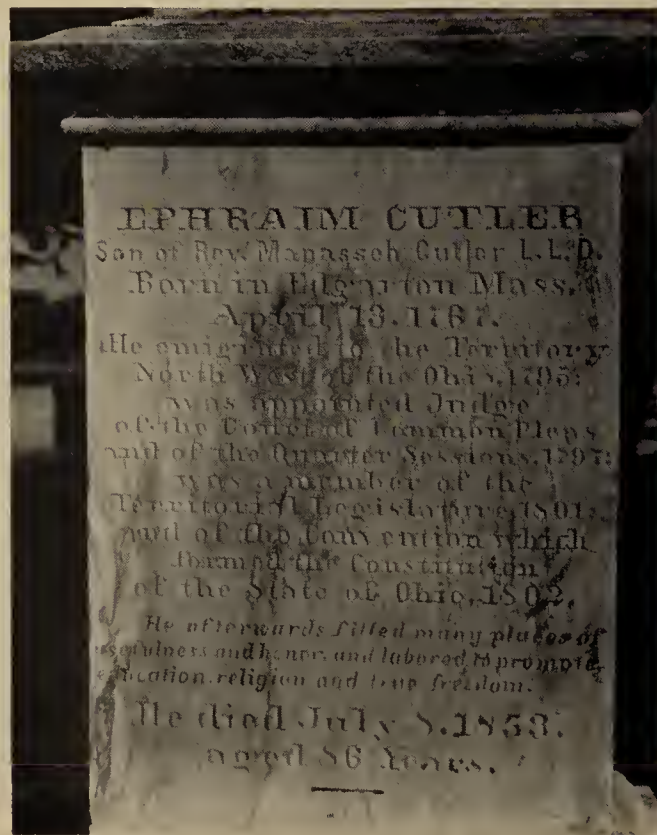 EPHRAIM CUTLER
Son of Rev. Manasseh Cutler L.L.D.
Born in Edgarton Mass.
April 13. 1767.
He emigrated to the Territory
North West of the Ohio, 1795:
was appointed Judge
of the Court of Common Pleas
and of the Quarter Sessions, 1797:
was a member of the
Territorial Legislature, 1801:
and of the Convention which
formed the Constitution
of the State of Ohio, 1802.
He afterwards filled many places of
usefulness and honor, and labored to promote
education, religion and true freedom.
He died July 8. 1853.
aged 86 Years.